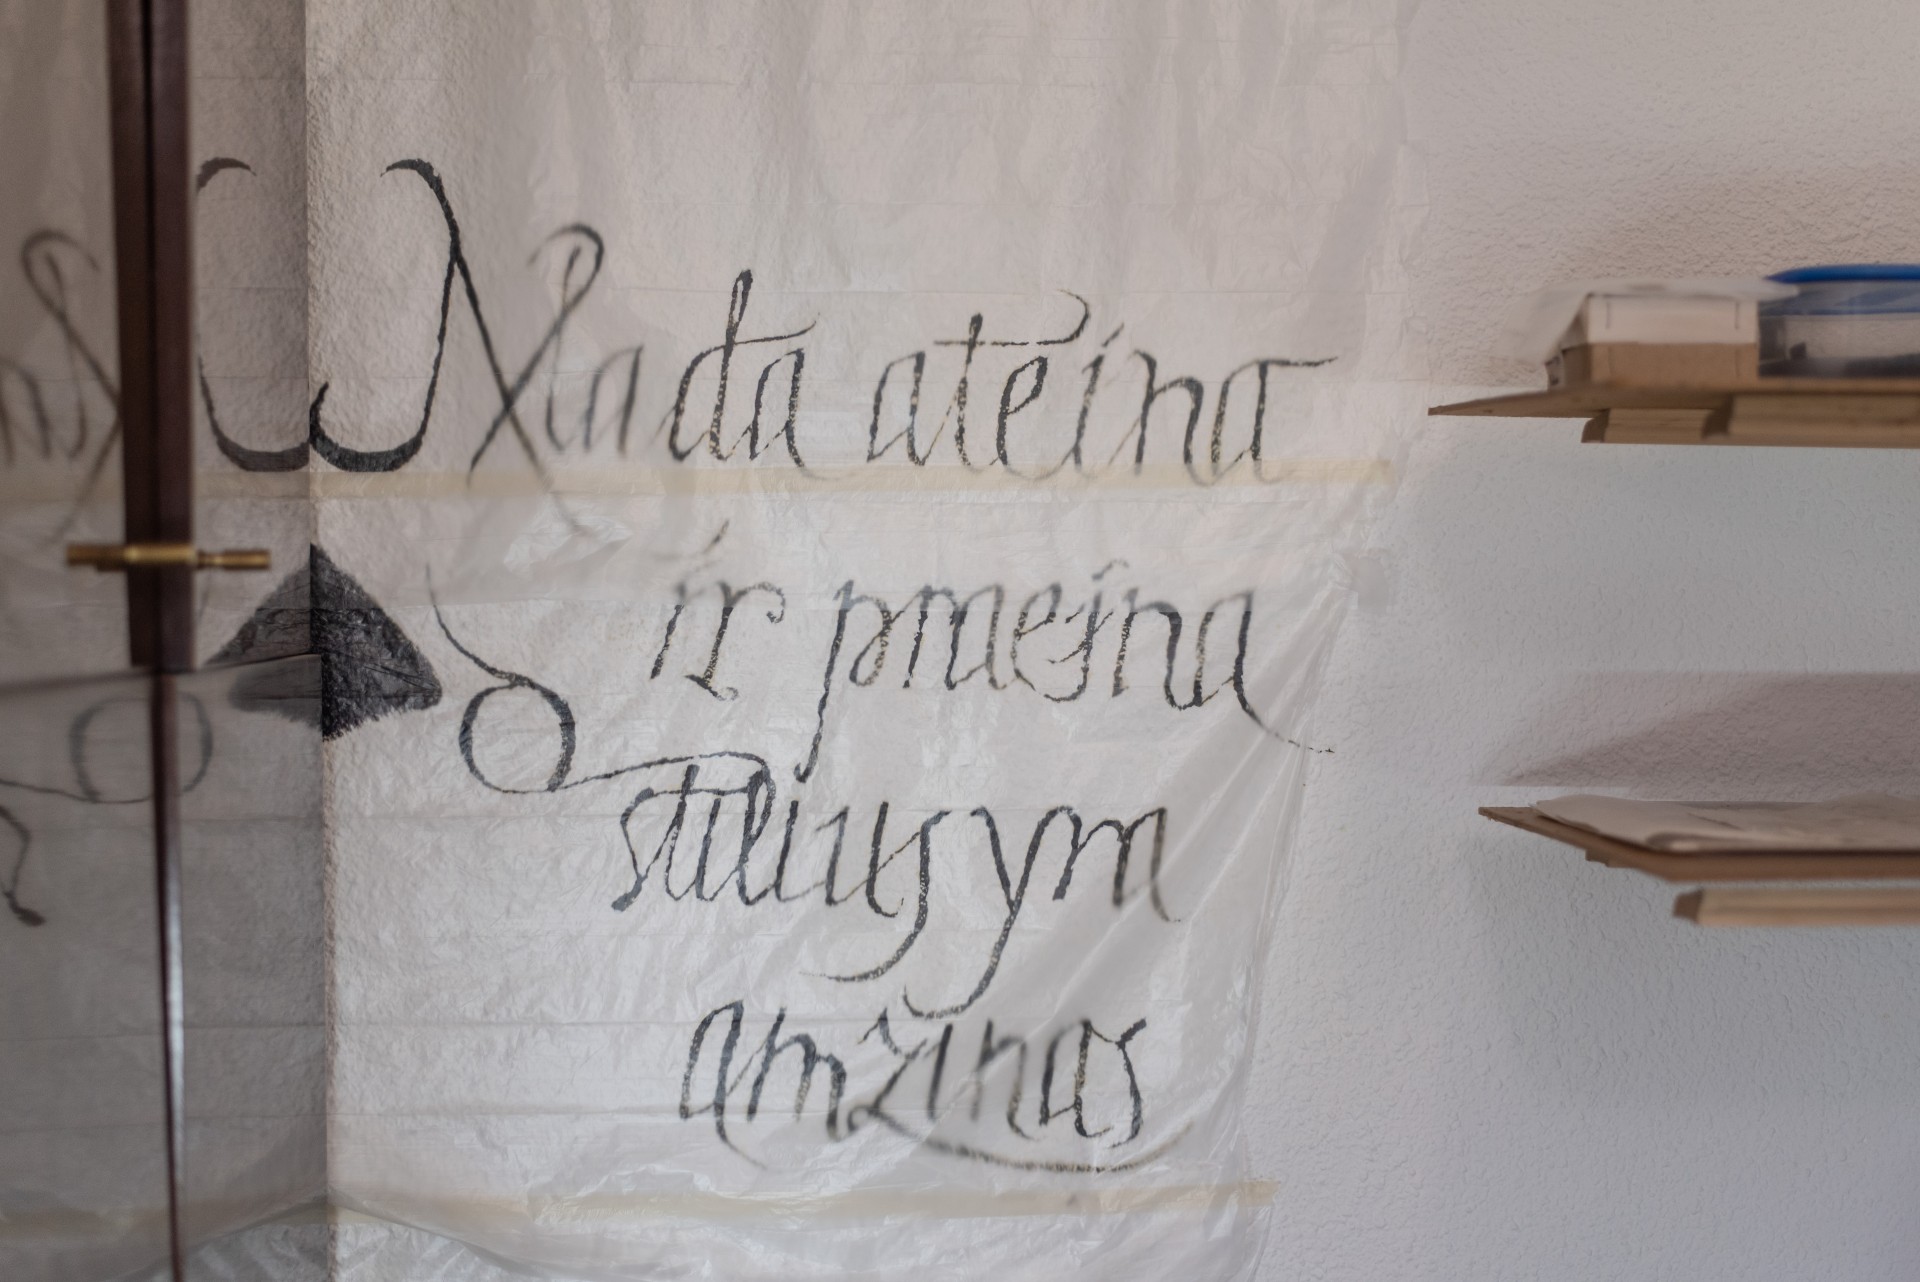 Mada ateina
ir praeina
stilius yra
amžinas